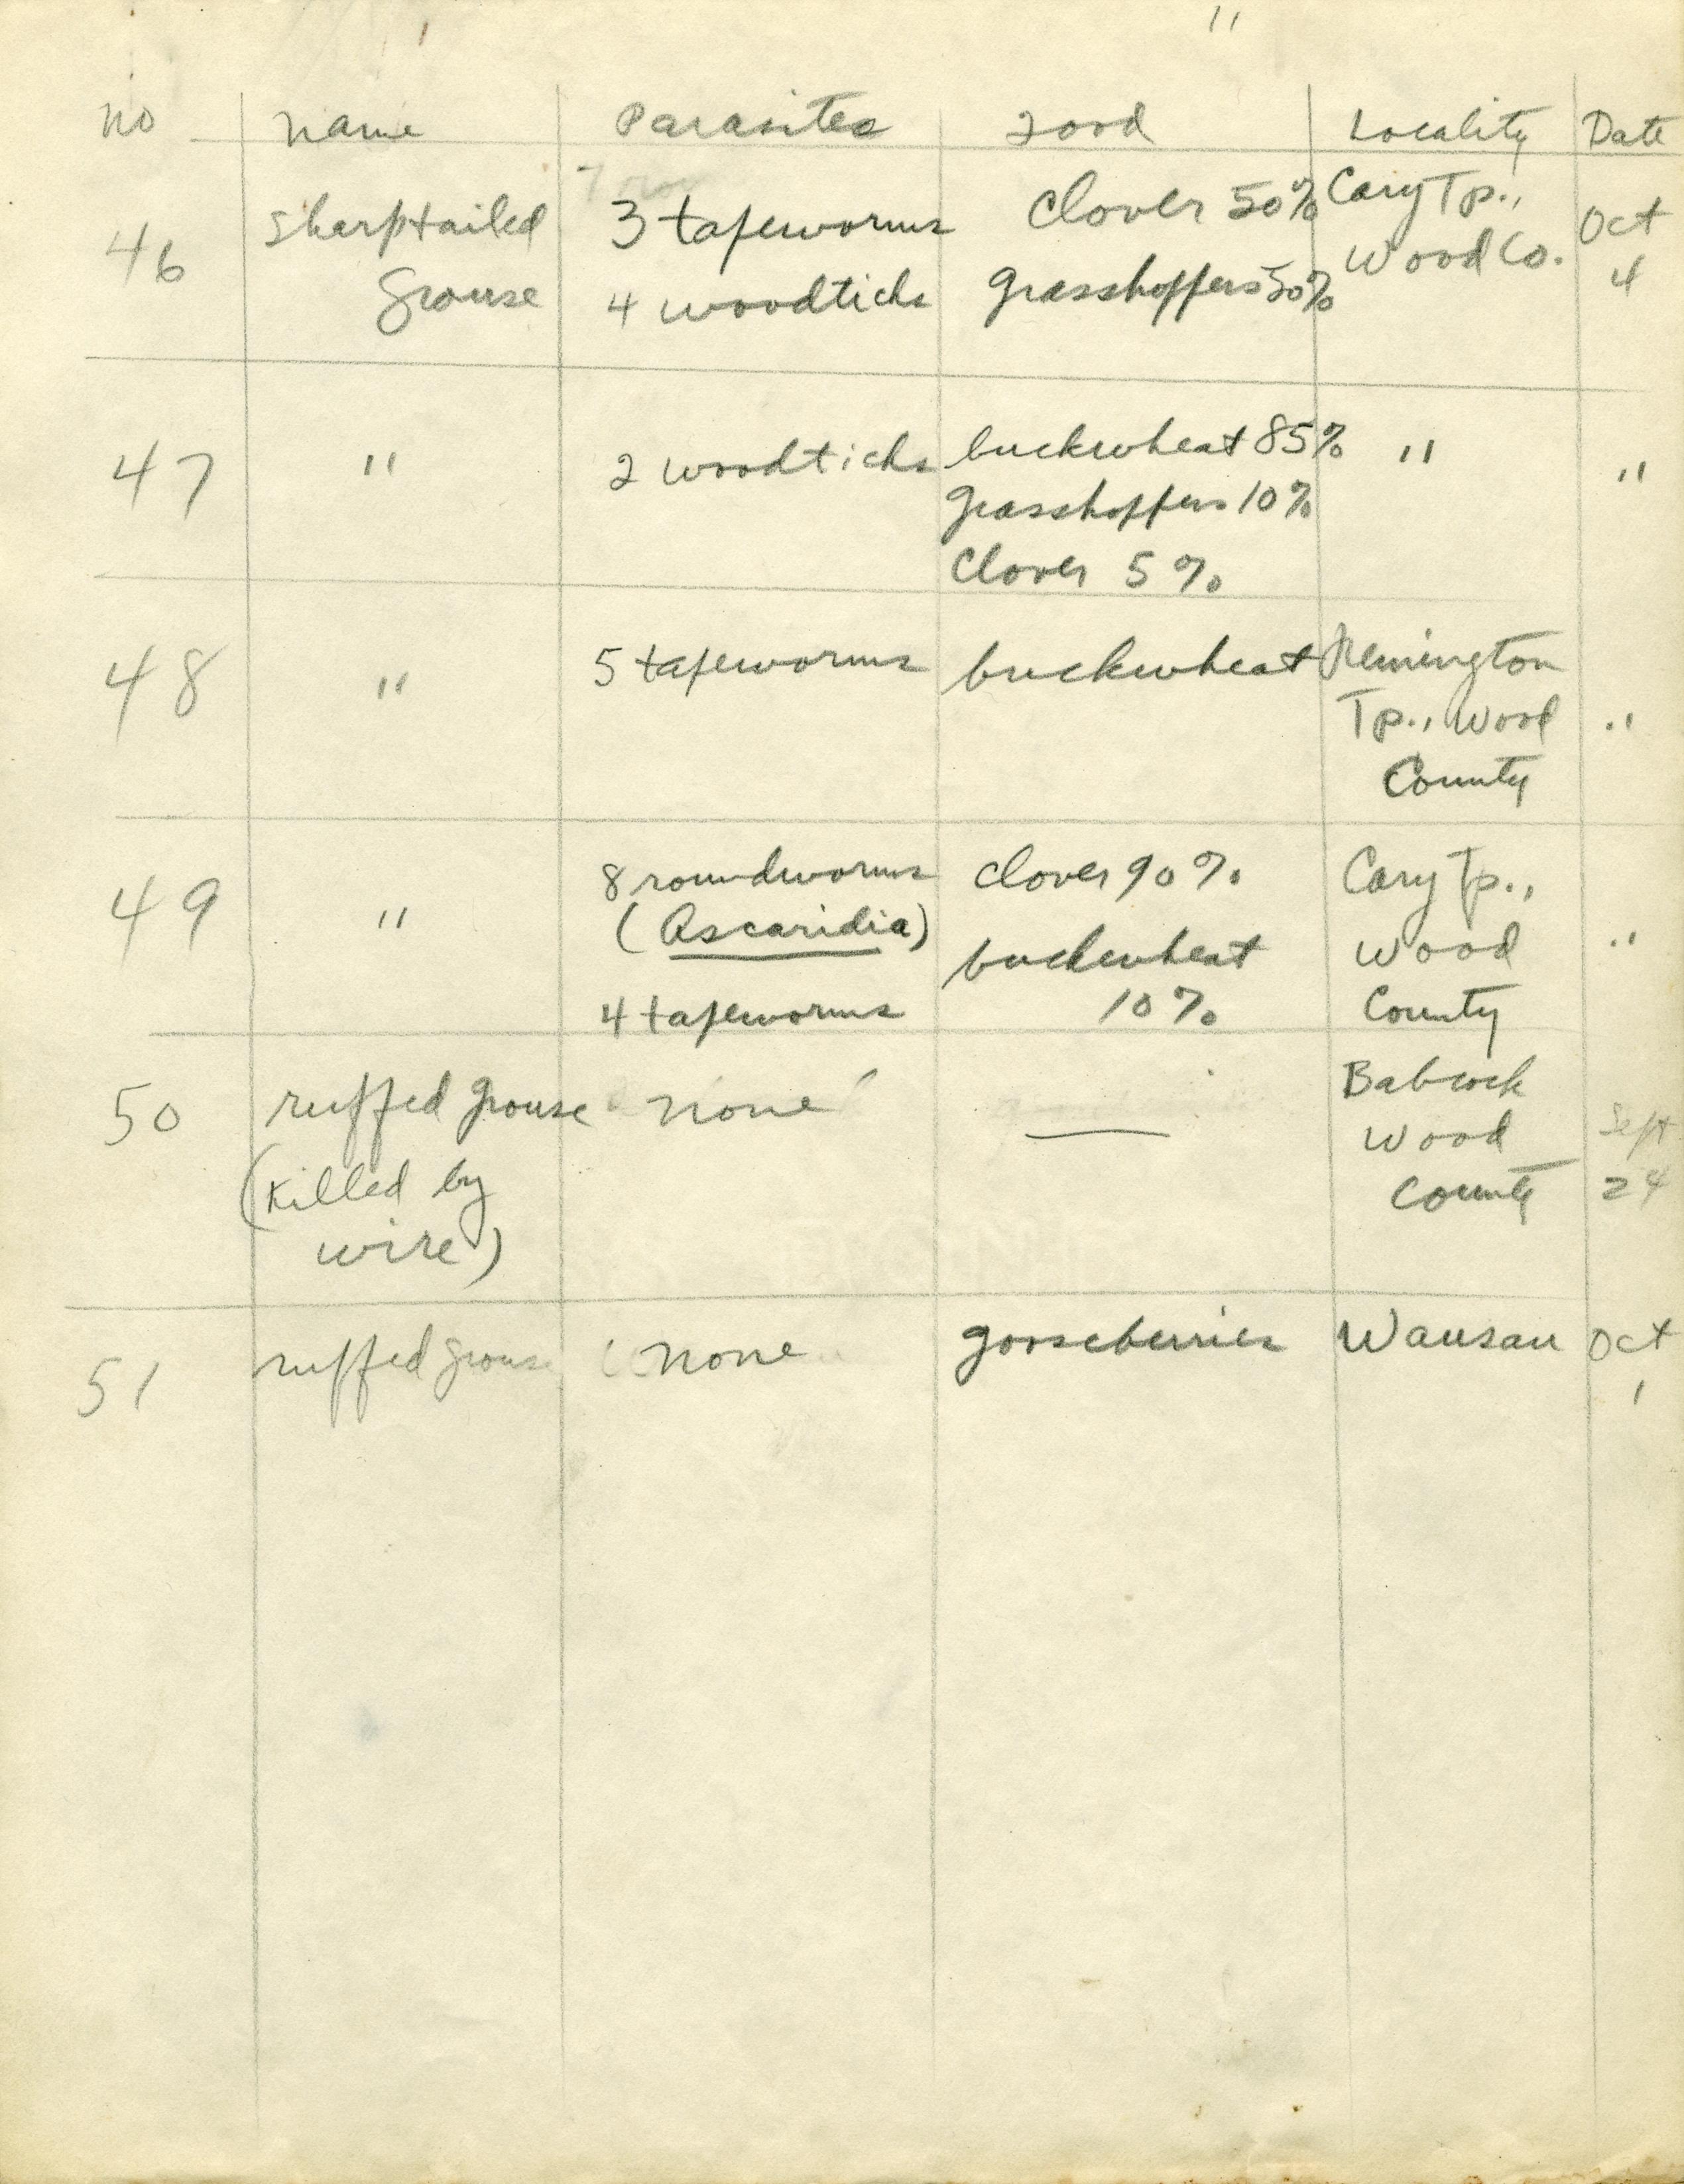 11
No Name Parasites Food Locality Date
46 Sharptailed Grouse 3 tapeworms 4 woodticks Clover 50% Grasshoppers 50% Cary Tp., Wood Co. Oct 4
47 " 2 woodticks buckwheat 85% Grasshoppers 10% Clover 5% " "
48 " 5 tapeworms buckwheat Remington Tp., Wood County "
49 " 8 roundworms (Ascaridia) 4 tapeworms clover 90% buckwheat 10% Cary Tp., Wood County "
50 ruffed grouse (killed by wire) none — Babcock Wood County Sept 24
51 ruffed grouse none gooseberries Wausau Oct 1